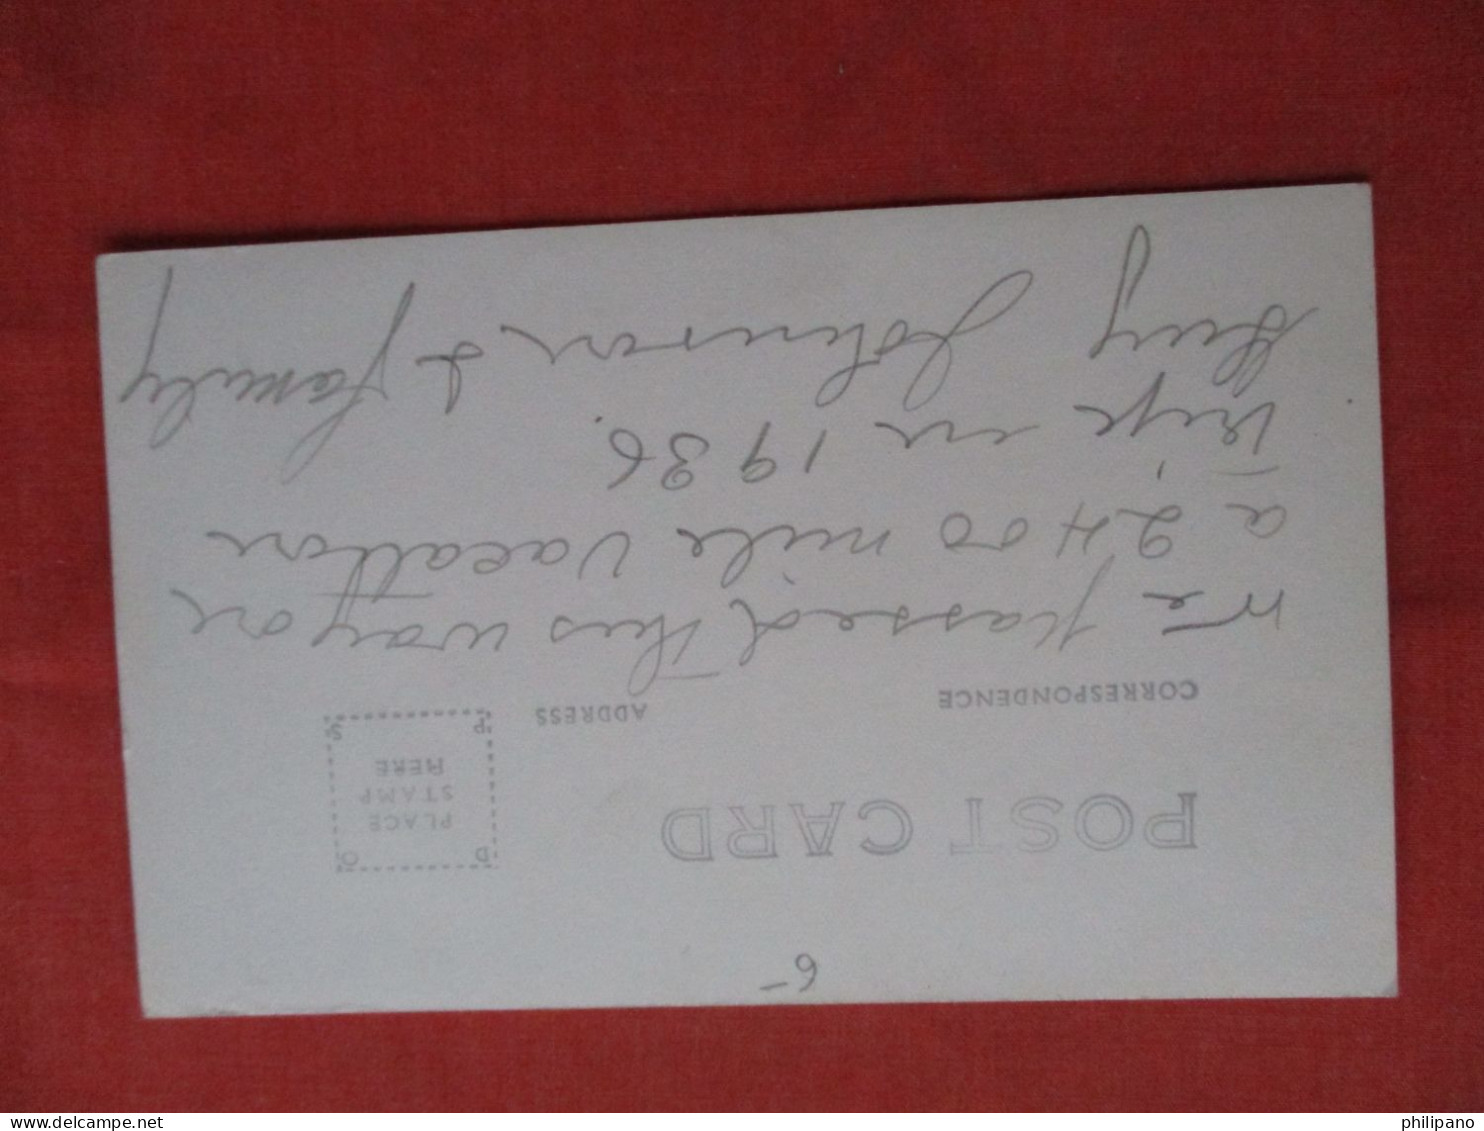 6-
POST CARD
D O
PLACE
STAMP
HERE
P S
CORRESPONDENCE
ADDRESS
We passed this way on
a 2400 mile Vacation
trip in 1936.
Guy Johnson & family
www.delcampe.net
philipano